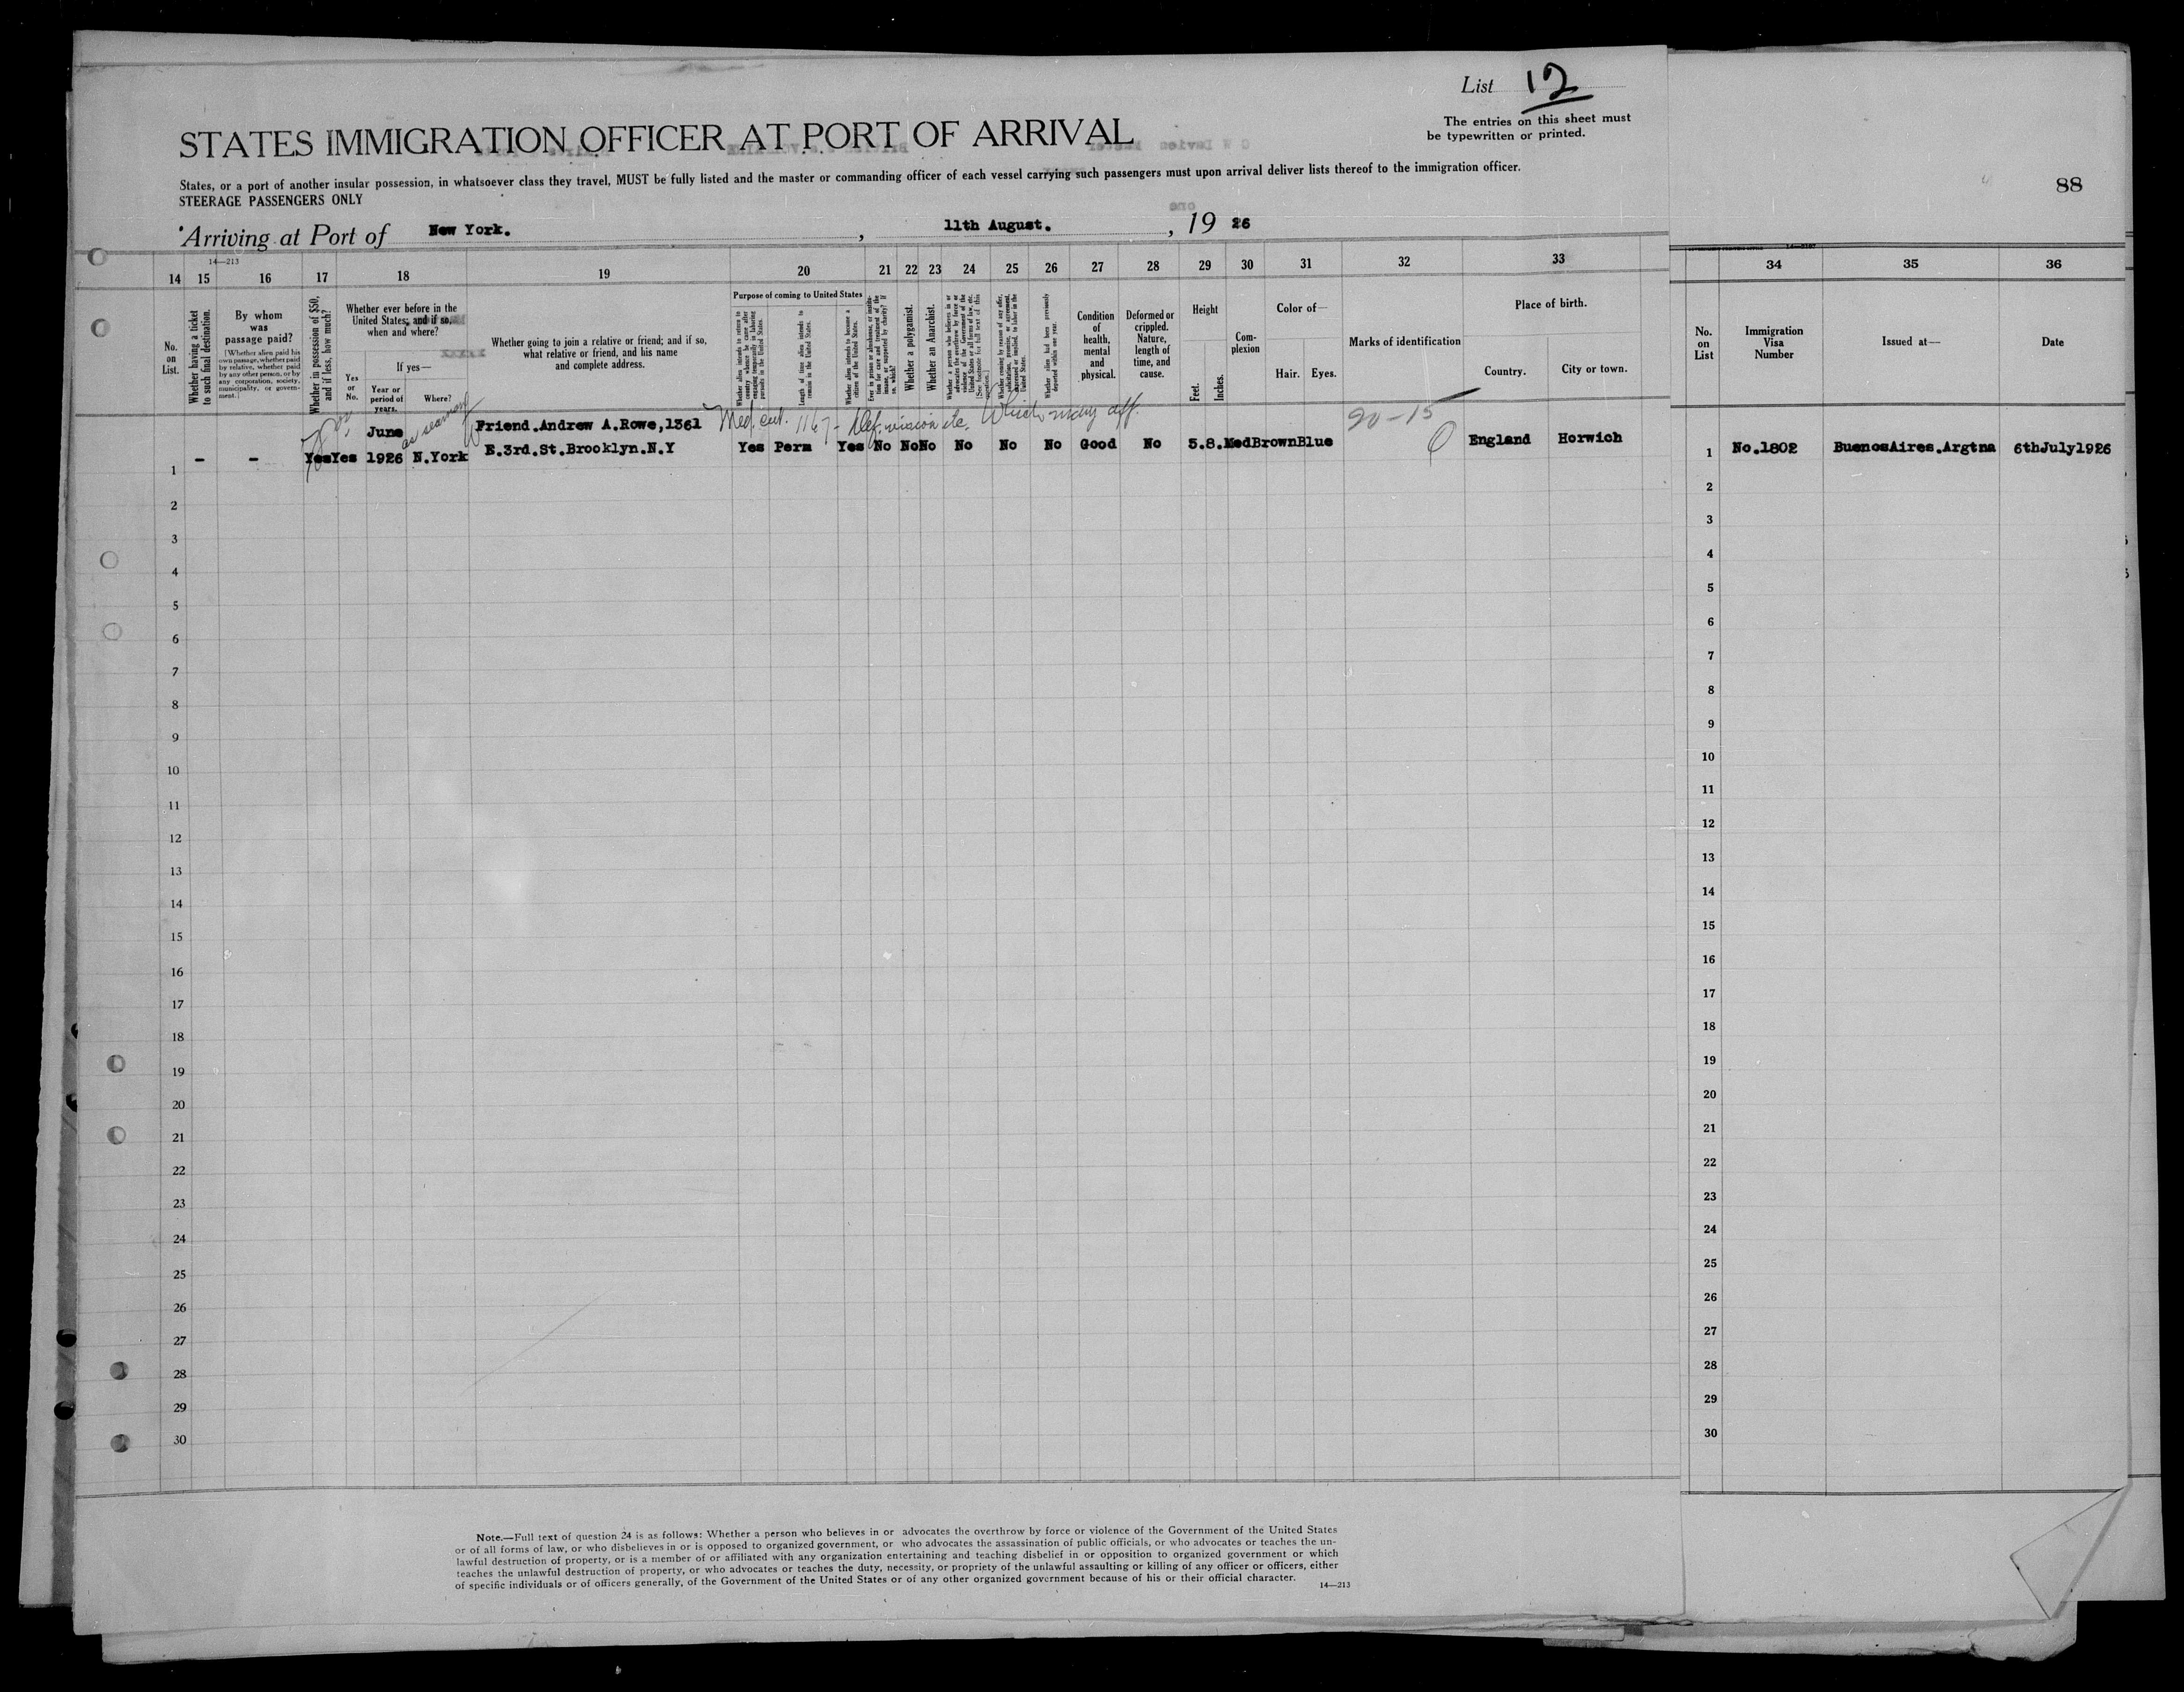 List 12
The entries on this sheet must
be typewritten or printed.
STATES IMMIGRATION OFFICER AT PORT OF ARRIVAL
States, or a port of another insular possession, in whatsoever class they travel, MUST be fully listed and the master or commanding officer of each vessel carrying such passengers must upon arrival deliver lists thereof to the immigration officer.
STEERAGE PASSENGERS ONLY
88
Arriving at Port of New York. , 11th August. , 19 26
14—213
14 15 16 17 18 19 20 21 22 23 24 25 26 27 28 29 30 31 32 33 34 35 36
No.
on
List.
Whether having a ticket
to such final destination.
By whom
was
passage paid?
[Whether alien paid his
own passage, whether paid
by relative, whether paid
by any other person, or by
any corporation, society,
municipality, or govern-
ment.]
Whether in possession of $50,
and if less, how much?
Whether ever before in the
United States; and if so,
when and where?
Yes
or
No.
If yes—
Year or
period of
years.
Where?
Whether going to join a relative or friend; and if so,
what relative or friend, and his name
and complete address.
Purpose of coming to United States
Whether alien intends to return to
country whence he came after
engaging temporarily in laboring
pursuits in the United States.
Length of time alien intends to
remain in the United States.
Whether alien intends to become a
citizen of the United States.
Ever in prison or almshouse, or institu-
tion for care and treatment of the
insane, or supported by charity? If
so, which?
Whether a polygamist.
Whether an Anarchist.
Whether a person who believes in or
advocates the overthrow by force or
violence of the Government of the
United States or all forms of law, etc.
[See footnote for full text of this
question.]
Whether coming by reason of any offer,
solicitation, promise, or agreement,
expressed or implied, to labor in the
United States.
Whether alien had been previously
deported within one year.
Condition
of
health,
mental
and
physical.
Deformed or
crippled.
Nature,
length of
time, and
cause.
Height
Feet.
Inches.
Com-
plexion
Color of—
Hair.
Eyes.
Marks of identification
Place of birth.
Country.
City or town.
No.
on
List
Immigration
Visa
Number
Issued at—
Date
as seaman
Med. cert. 1167 - Def. vision etc. which may aff.
20-15
June
Friend.Andrew A.Rowe,1361
1 - - Yes Yes 1926 N.York E.3rd.St.Brooklyn.N.Y Yes Perm Yes No No No No No No Good No 5.8. Med Brown Blue England Horwich 1 No.1802 BuenosAires.Argtna 6thJuly1926
2 2
3 3
4 4
5 5
6 6
7 7
8 8
9 9
10 10
11 11
12 12
13 13
14 14
15 15
16 16
17 17
18 18
19 19
20 20
21 21
22 22
23 23
24 24
25 25
26 26
27 27
28 28
29 29
30 30
Note.—Full text of question 24 is as follows: Whether a person who believes in or advocates the overthrow by force or violence of the Government of the United States
or of all forms of law, or who disbelieves in or is opposed to organized government, or who advocates the assassination of public officials, or who advocates or teaches the un-
lawful destruction of property, or is a member of or affiliated with any organization entertaining and teaching disbelief in or opposition to organized government or which
teaches the unlawful destruction of property, or who advocates or teaches the duty, necessity, or propriety of the unlawful assaulting or killing of any officer or officers, either
of specific individuals or of officers generally, of the Government of the United States or of any other organized government because of his or their official character.
14—213